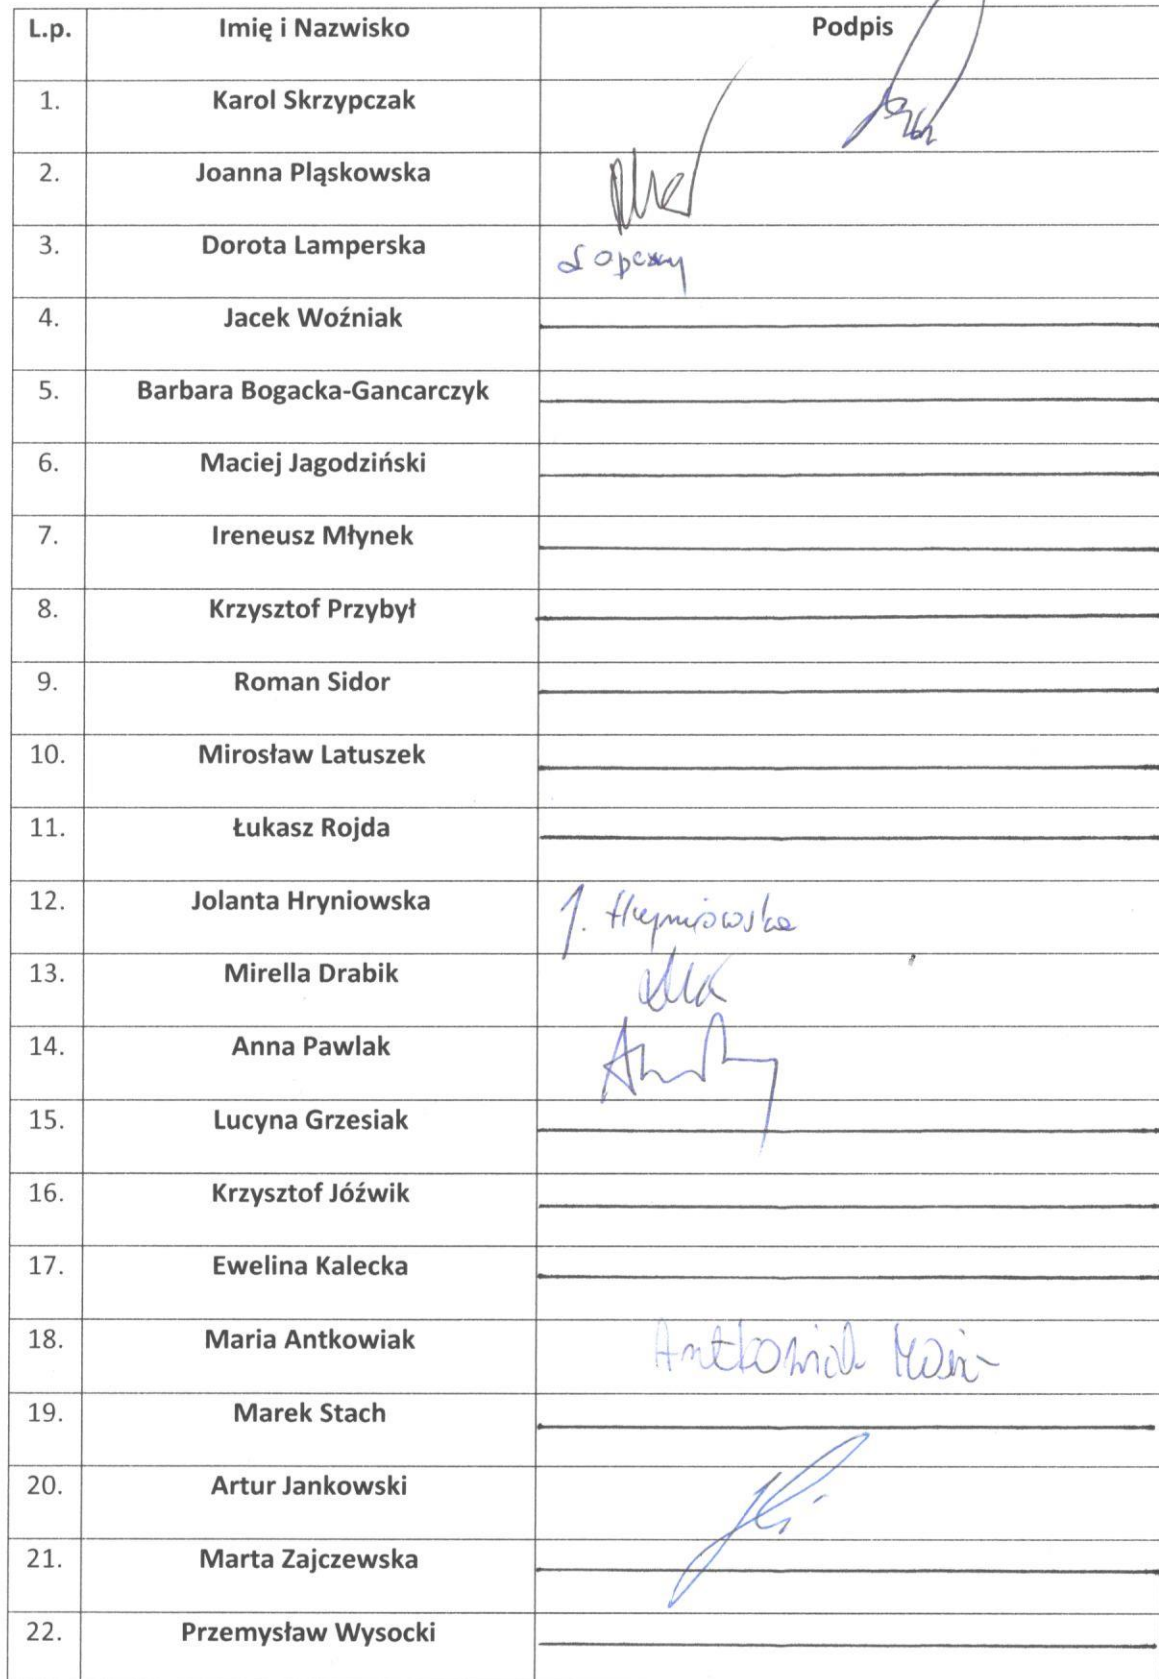 L.p. Imię i Nazwisko Podpis
1. Karol Skrzypczak
2. Joanna Pląskowska
3. Dorota Lamperska
4. Jacek Woźniak
5. Barbara Bogacka-Gancarczyk
6. Maciej Jagodziński
7. Ireneusz Młynek
8. Krzysztof Przybył
9. Roman Sidor
10. Mirosław Latuszek
11. Łukasz Rojda
12. Jolanta Hryniowska J. Hryniowska
13. Mirella Drabik
14. Anna Pawlak
15. Lucyna Grzesiak
16. Krzysztof Jóźwik
17. Ewelina Kalecka
18. Maria Antkowiak Antkowiak
19. Marek Stach
20. Artur Jankowski
21. Marta Zajczewska
22. Przemysław Wysocki